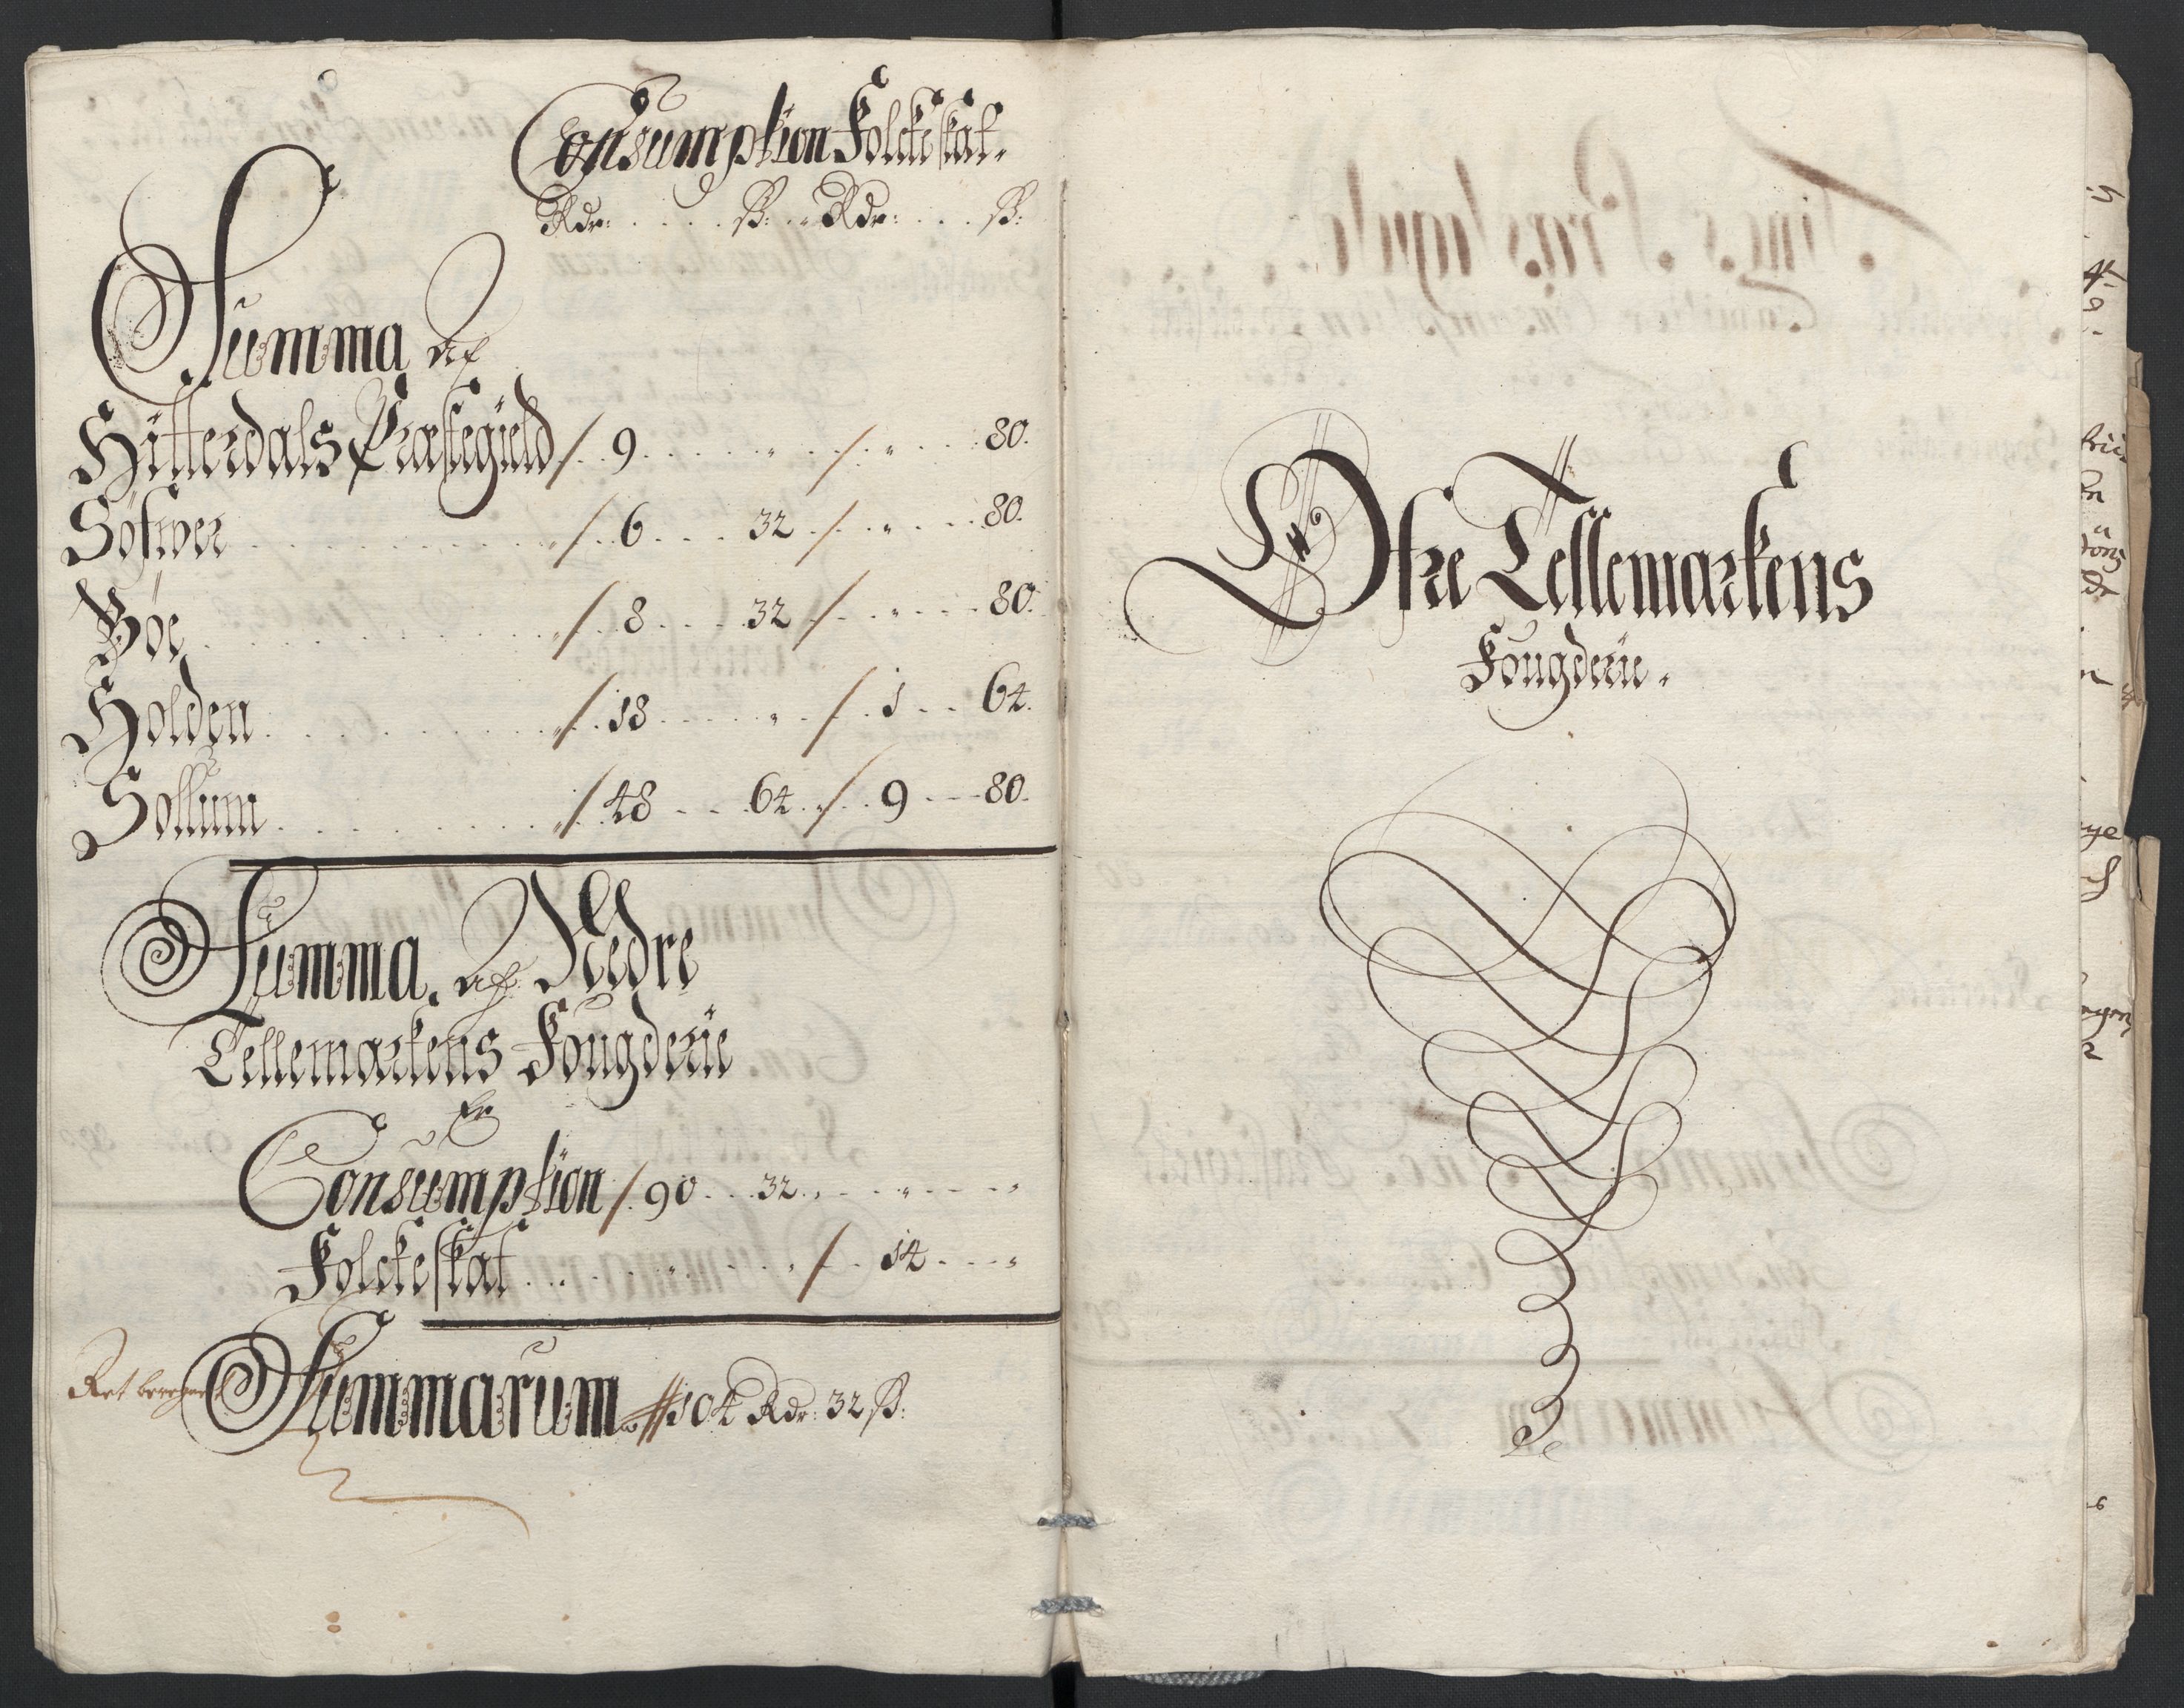 Consumption Folckeskat.
Rdr: ß: Rdr: ß:
Summa af
Hitterdals Præstegield / 9 . . . " / " . . . 80.
Söfwer / 6 . . . 32 / " . . . 80.
Böe / 8 . . . 32 / " . . . 80.
Holden / 18 . . . " / 1 . . 64.
Sollum / 48 . . 64 / 9 . . . 80.
Summa. af Nedre
Tellemarkens Fougderie
Er
Consumption / 90 . . 32 . . . " . . . "
Folckeskat . . . " . . . " / 14 . . . "
Ret beregnet
Summarum // 104 Rdr: 32 ß:
Ofre Tellemarkens
Fougderie.